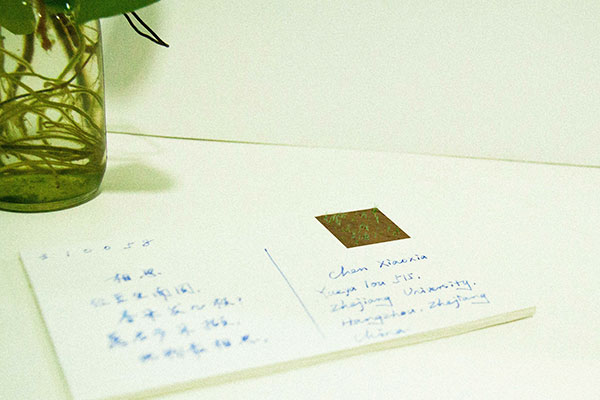 310058
相思
红豆生南国,
春来发几枝,
愿君多采撷,
此物最相思.
Chen Xiaoxia
Yueya lou 515,
Zhejiang University,
Hangzhou, Zhejiang
China